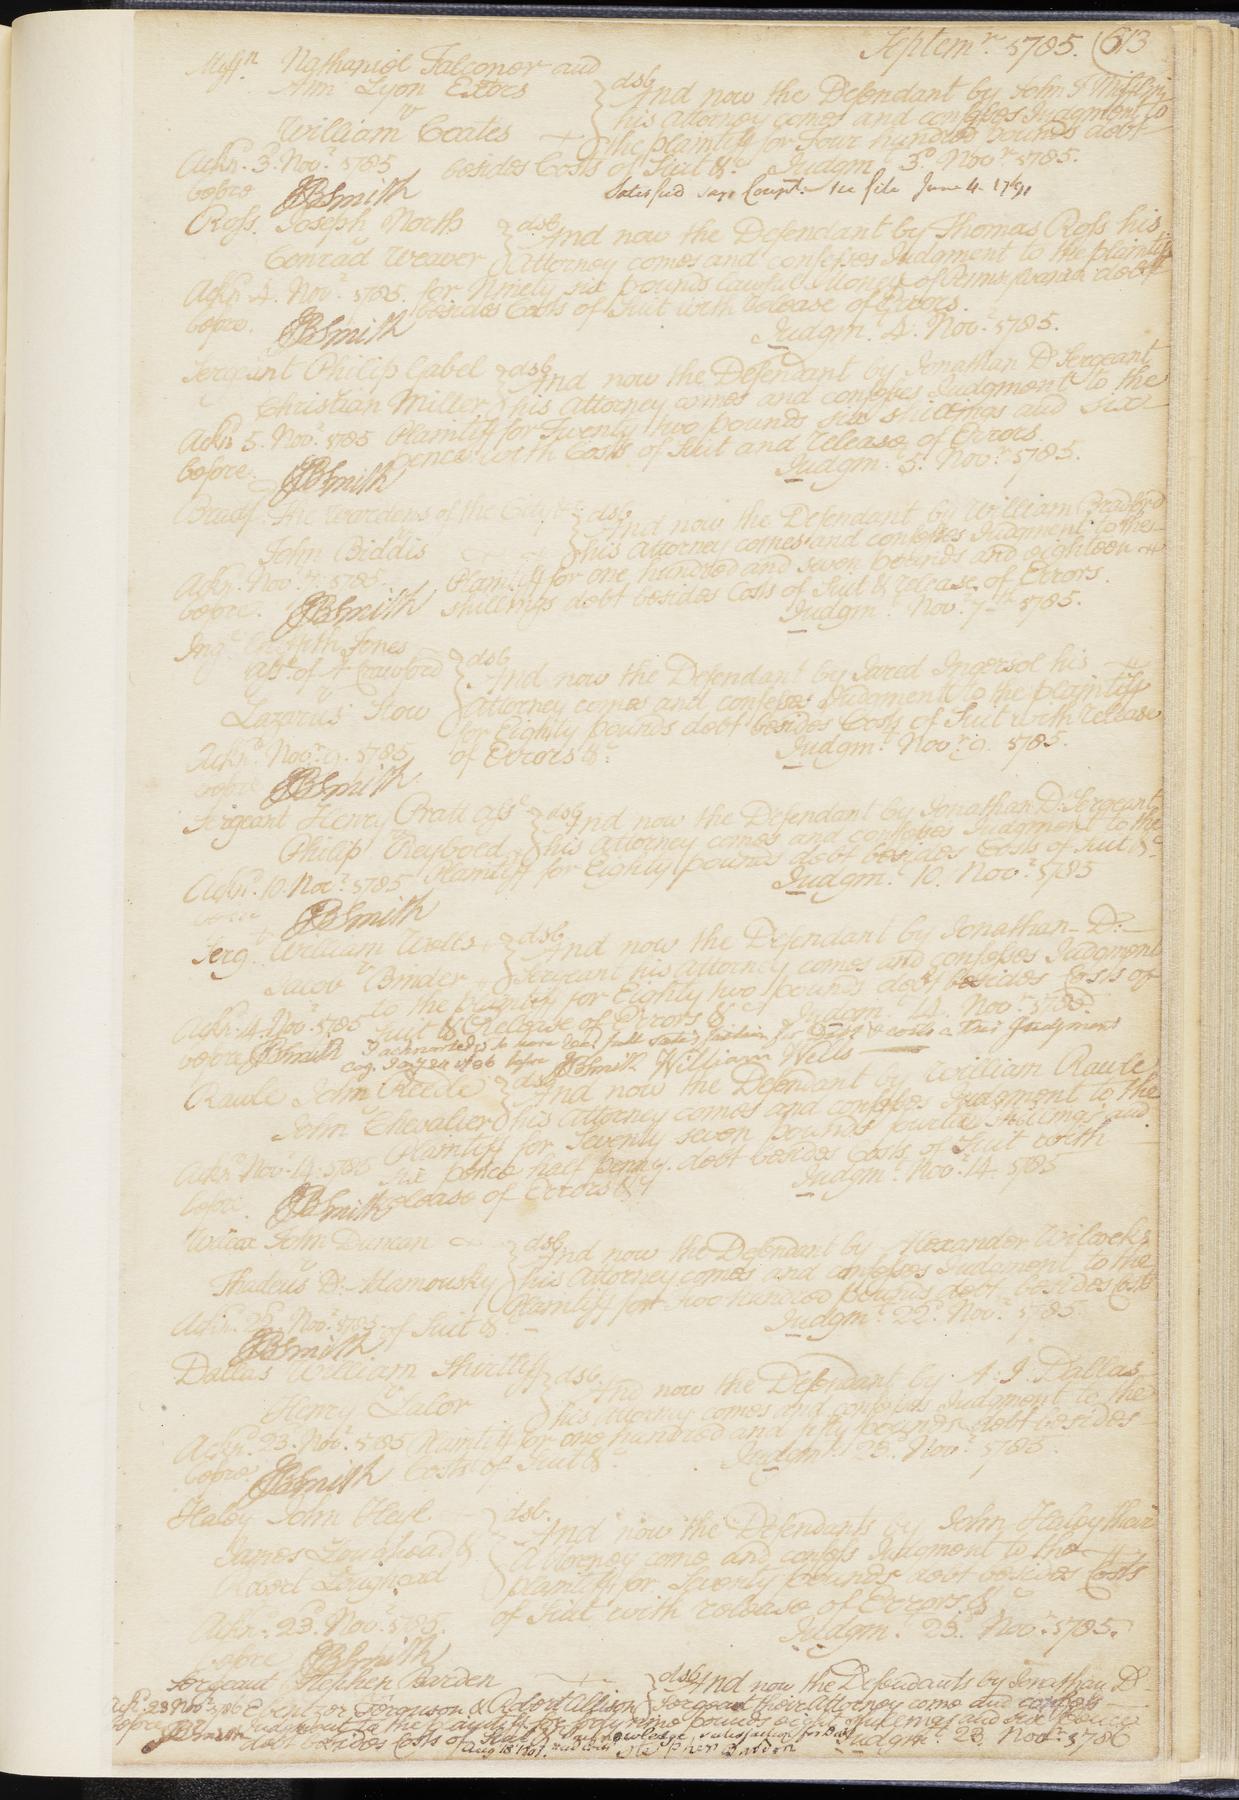 Septemr. 1785. 613
Miffn. Nathaniel Falconer and
Ann Lyon Extors
v
William Coates
dsb And now the Defendant by John F Mifflin
his Attorney comes and confesses Judgment to
the plaintiff for Four hundred pounds debt
Ackn. 3. Nov. 1785 besides Costs of Suit &c Judgmt. 3d. Novr. 1785.
before JBSmith Satisfied see file June 4. 1791
Ross. Joseph North
v
Conrad Weaver
dsb And now the Defendant by Thomas Ross his
Attorney comes and confesses Judgment to the plaintiff
Ackn. 4. Novr. 1785. for Ninety six pounds lawful Money of Pennsylvania debt
besides Costs of Suit with release of Errors.
before. JBSmith Judgmt. 4. Novr. 1785.
Sergeant Philip Gabel
v
Christian Miller
dsb And now the Defendant by Jonathan D Sergeant
his Attorney comes and confesses Judgment to the
Ackn. 5. Novr. 1785 Plaintiff for Twenty two pounds six shillings and six
pence with Costs of Suit and release of Errors.
before. JBSmith Judgmt. 5. Novr. 1785.
Bradf. The Wardens of the City
v
John Biddis
dsb And now the Defendant by William Bradford
his Attorney comes and confesses Judgment to the
Ackn. Novr. 7. 1785. Plaintiff for one hundred and seven pounds and eighteen
shillings debt besides Costs of Suit & release of Errors.
before. JBSmith Judgmt. Novr. 7th 1785.
Ing. Griffith Jones
Asse. of Crawford
v
Lazarus Stow
dsb And now the Defendant by Jared Ingersol his
Attorney comes and confesses Judgment to the plaintiff
for Eighty pounds debt besides Costs of Suit with release
of Errors &c
Ackn. Novr. 9. 1785 Judgmt. Novr. 9. 1785.
before JBSmith
Sergeant Henry Pratt asse
v
Philip Reybold
dsb And now the Defendant by Jonathan D. Sergeant
his Attorney comes and confesses Judgment to the
Plaintiff for Eighty pounds debt besides Costs of Suit &c
Ackn. 10. Novr. 1785 Judgmt. 10. Novr. 1785
JBSmith
Serg. William Wells
v
Jacob Binder
dsb And now the Defendant by Jonathan D.
Sergeant his Attorney comes and confesses Judgment
to the plaintiff for Eighty two pounds debt besides Costs of
Ackn. 14. Novr. 1785 Suit & Release of Errors &c Judgmt. 14. Novr. 1785.
before JBSmith I acknowledge to have recd full satisfaction for Debt & costs on this Judgment
before JBSmith William Wells
Rawle John Reedle
v
John Chevalier
dsb And now the Defendant by William Rawle
his Attorney comes and confesses Judgment to the
Plaintiff for Seventy seven pounds twelve shillings and
six pence half penny. debt besides Costs of Suit with
Ackn. Novr. 14. 1785 Judgmt. Novr. 14. 1785
before. JBSmith release of Errors &c
Wilcox John Duncan
v
Thadeus D. Adamousky
dsb And now the Defendant by Alexander Wilcocks
his Attorney comes and confesses Judgment to the
Plaintiff for two hundred pounds debt besides Costs
Ackn. 22. Novr. 1785 of Suit &c Judgmt. 22d. Novr. 1785.
JBSmith
Dallas William Shirtliff
v
Henry Lalor
dsb And now the Defendant by A. J. Dallas
his Attorney comes and confesses Judgment to the
Ackn. 23. Novr. 1785 Plaintiff for one hundred and fifty pounds debt besides
before. JBSmith Costs of Suit &c Judgmt. 23. Novr. 1785.
Haley John Heyl
v
James Loughead &
Robert Loughead
dsb. And now the Defendants by John Haley their
Attorney come and confess Judgment to the
plaintiff for Seventy pounds debt besides Costs
of Suit with release of Errors &c
Ackn. 23. Novr. 1785. Judgmt. 23. Novr. 1785.
before JBSmith
Sergeant Stephen Barden
v
Ebenezer Ferguson & Robert Allison
dsb And now the Defendants by Jonathan D
Sergeant their Attorney come and confess
Judgment to the plaintiff for forty nine pounds eight shillings and six pence
debt besides Costs of Suit Judgmt. 23. Novr. 1786
acknowledge satisfaction for Debt
Aug 18 1787. and costs Stephen Barden